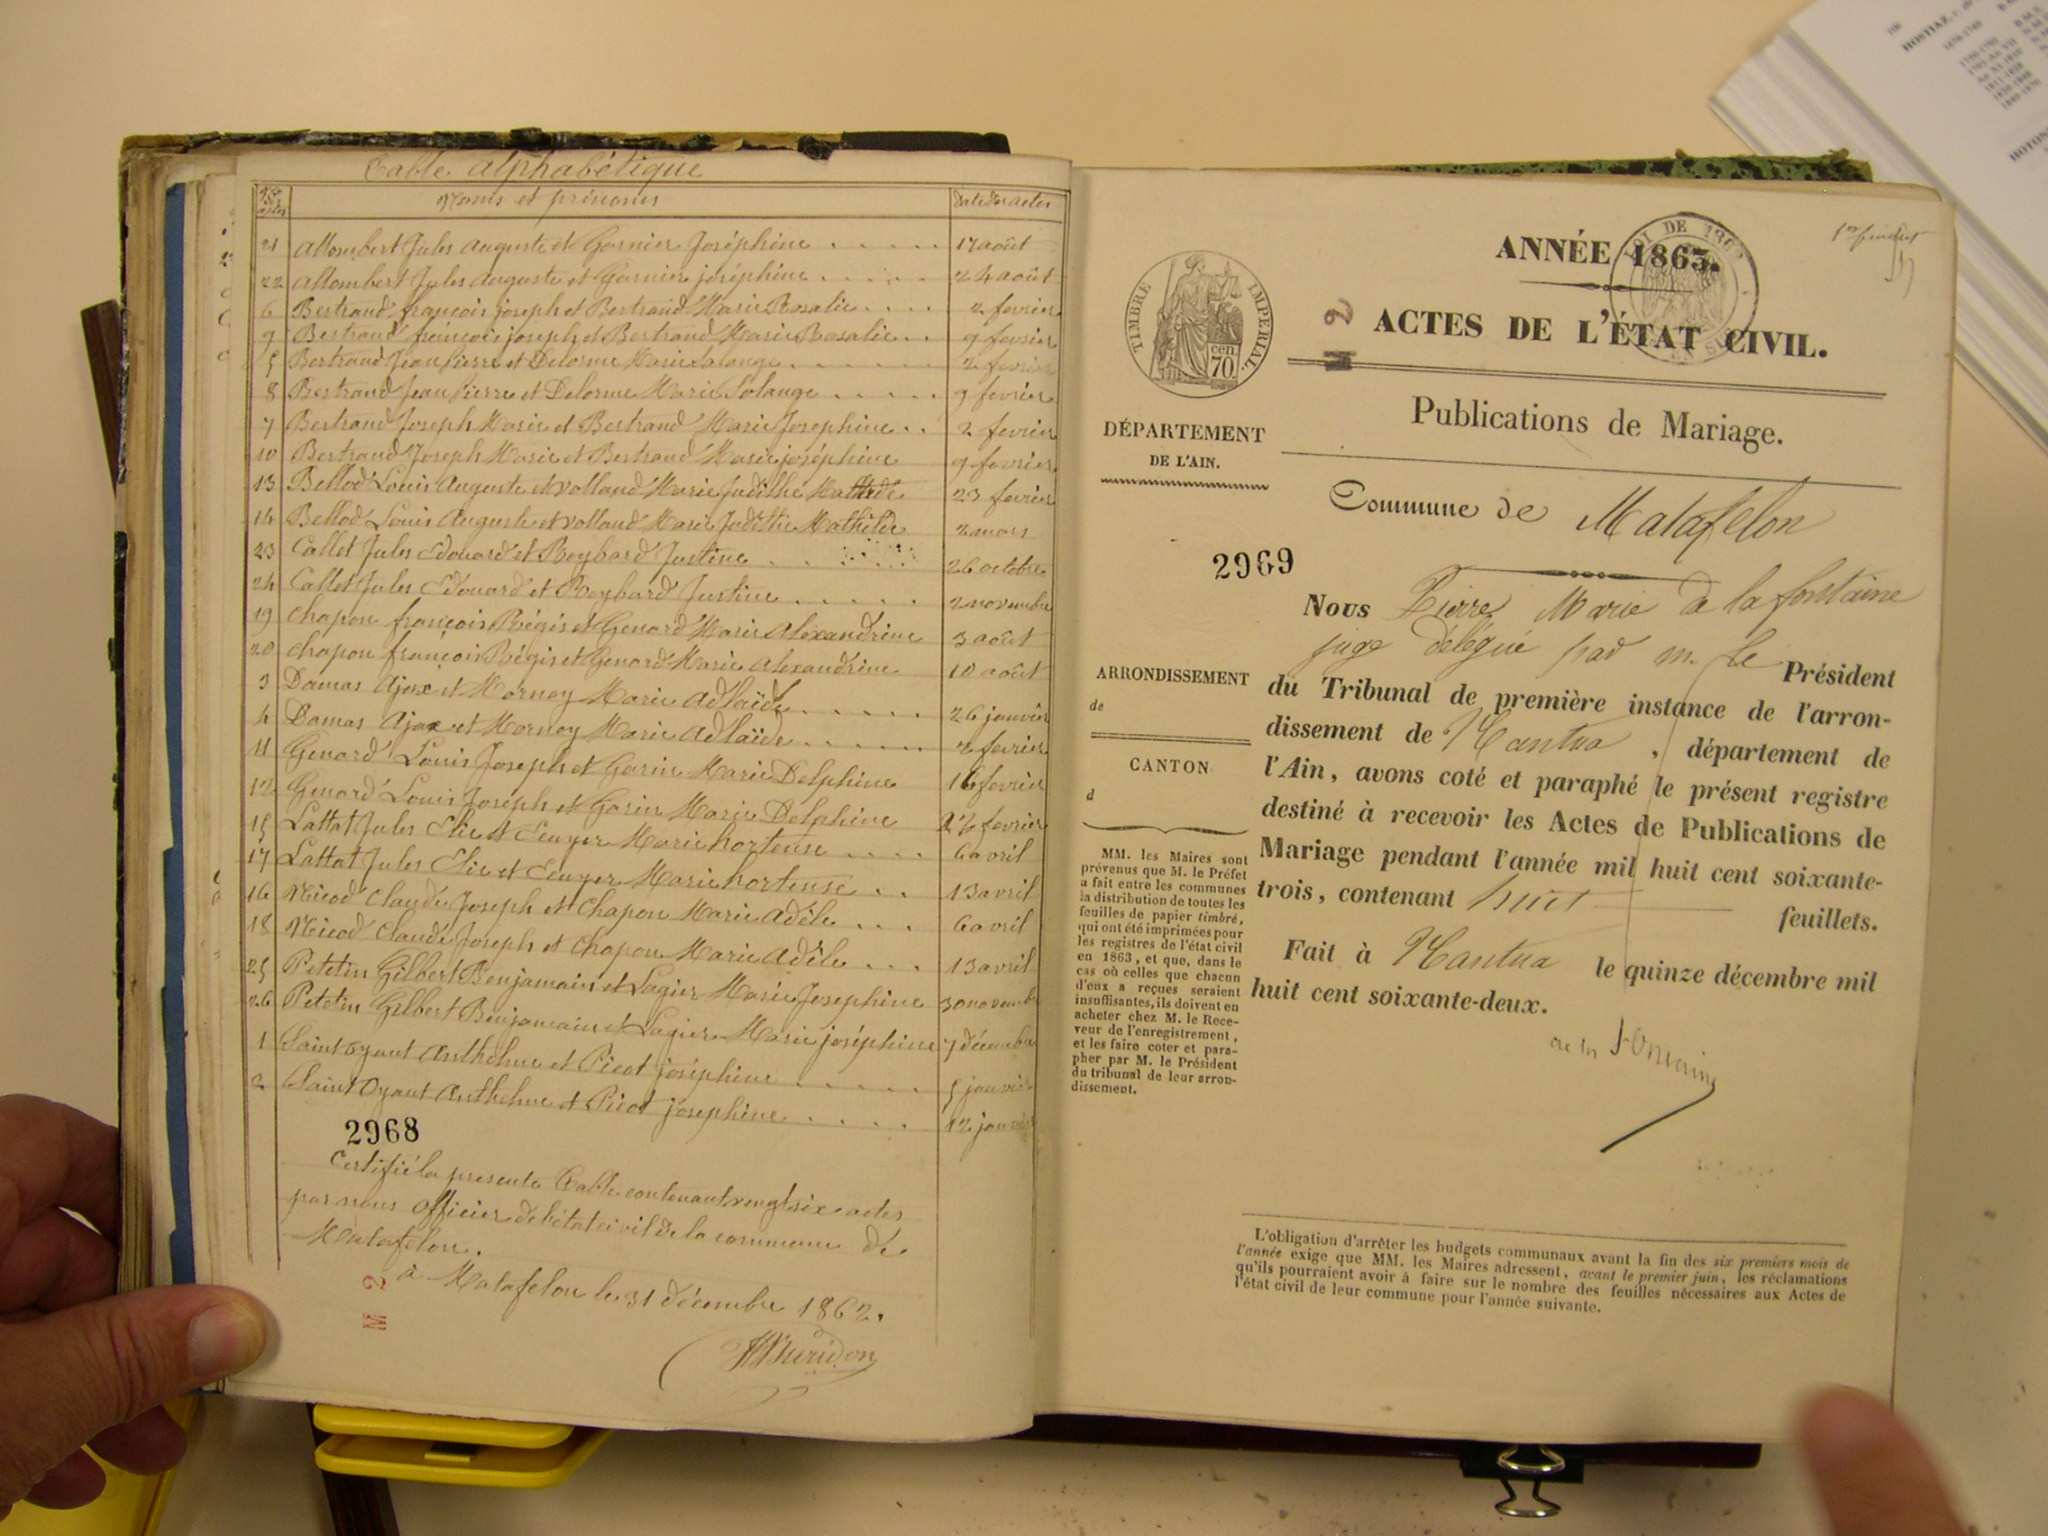 Table alphabétique
Noms et prénoms Date des actes
21 Allombert Jules Auguste et Garnier Joséphine 17 août
22 Allombert Jules Auguste et Garnier joséphine 24 août
6 Bertrand françois joseph et Bertrand Marie Rosalie 2 fevrier
9 Bertrand françois joseph et Bertrand Marie Rosalie 9 fevrier
5 Bertrand Jean Pierre et Delorme Marie Solange 2 fevrier
8 Bertrand Jean Pierre et Delorme Marie Solange 9 fevrier
7 Bertrand Joseph Marie et Bertrand Marie Josephine 2 fevrier
10 Bertrand Joseph Marie et Bertrand Marie joséphine 9 fevrier
13 Bellod Louis Auguste et Volland Marie Judithe Mathilde 23 fevrier
14 Bellod Louis Auguste et Volland Marie Judithe Mathilde 2 mars
23 Callet Jules Edouard et Reybard Justine 26 octobre
24 Callet Jules Edouard et Reybard Justine 2 novembre
19 Chapon françois Régis et Genard Marie Alexandrine 3 août
20 Chapon françois Régis et Genard Marie Alexandrine 10 août
3 Damas Ajax et Mornay Marie Adlaïde 26 janvier
4 Damas Ajax et Mornay Marie Adlaïde 2 fevrier
11 Genard Louis Joseph et Garin Marie Delphine 16 fevrier
12 Genard Louis Joseph et Garin Marie Delphine 23 fevrier
15 Lattat Jules Elie et Marie hortense 6 avril
17 Lattat Jules Elie et Marie hortense 13 avril
16 Nicod Claude Joseph et Chapon Marie Adèle 6 avril
18 Nicod Claude Joseph et Chapon Marie Adèle 13 avril
25 Petetin Gilbert Benjamain et Lagier Marie Josephine 30 novembre
26 Petetin Gilbert Benjamain et Lagier Marie joséphine 7 décembre
1 Saint Oyant Anthelme et Picot joséphine 5 janvier
2 Saint Oyant Anthelme et Picot josephine 12 janvier
2968
Certifié la presente Table contenant vingt six actes
par nous Officier de l'état civil de la commune de
Matafelon.
à Matafelon le 31 décembre 1862.
M 2
1er feuillet
TIMBRE IMPÉRIAL
cen. 70.
ANNÉE 1863.
M 2
ACTES DE L'ÉTAT CIVIL.
Publications de Mariage.
DÉPARTEMENT
DE L'AIN.
Commune de Matafelon
2969
Nous Pierre Marie de la fontaine
juge délégué par m. le Président
ARRONDISSEMENT
de
CANTON
d
du Tribunal de première instance de l'arron-
dissement de Nantua, département de
l'Ain, avons coté et paraphé le présent registre
destiné à recevoir les Actes de Publications de
Mariage pendant l'année mil huit cent soixante-
trois, contenant huit feuillets.
Fait à Nantua le quinze décembre mil
huit cent soixante-deux.
MM. les Maires sont
prévenus que M. le Préfet
a fait entre les communes
la distribution de toutes les
feuilles de papier timbré,
qui ont été imprimées pour
les registres de l'état civil
en 1863, et que, dans le
cas où celles que chacun
d'eux a reçues seraient
insuffisantes, ils doivent en
acheter chez M. le Rece-
veur de l'enregistrement,
et les faire coter et para-
pher par M. le Président
du tribunal de leur arron-
dissement.
L'obligation d'arrêter les budgets communaux avant la fin des six premiers mois de
l'année exige que MM. les Maires adressent, avant le premier juin, les réclamations
qu'ils pourraient avoir à faire sur le nombre des feuilles nécessaires aux Actes de
l'état civil de leur commune pour l'année suivante.
HOSTIAZ,